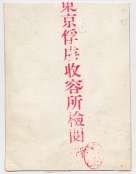 東京俘虜収容所檢閲